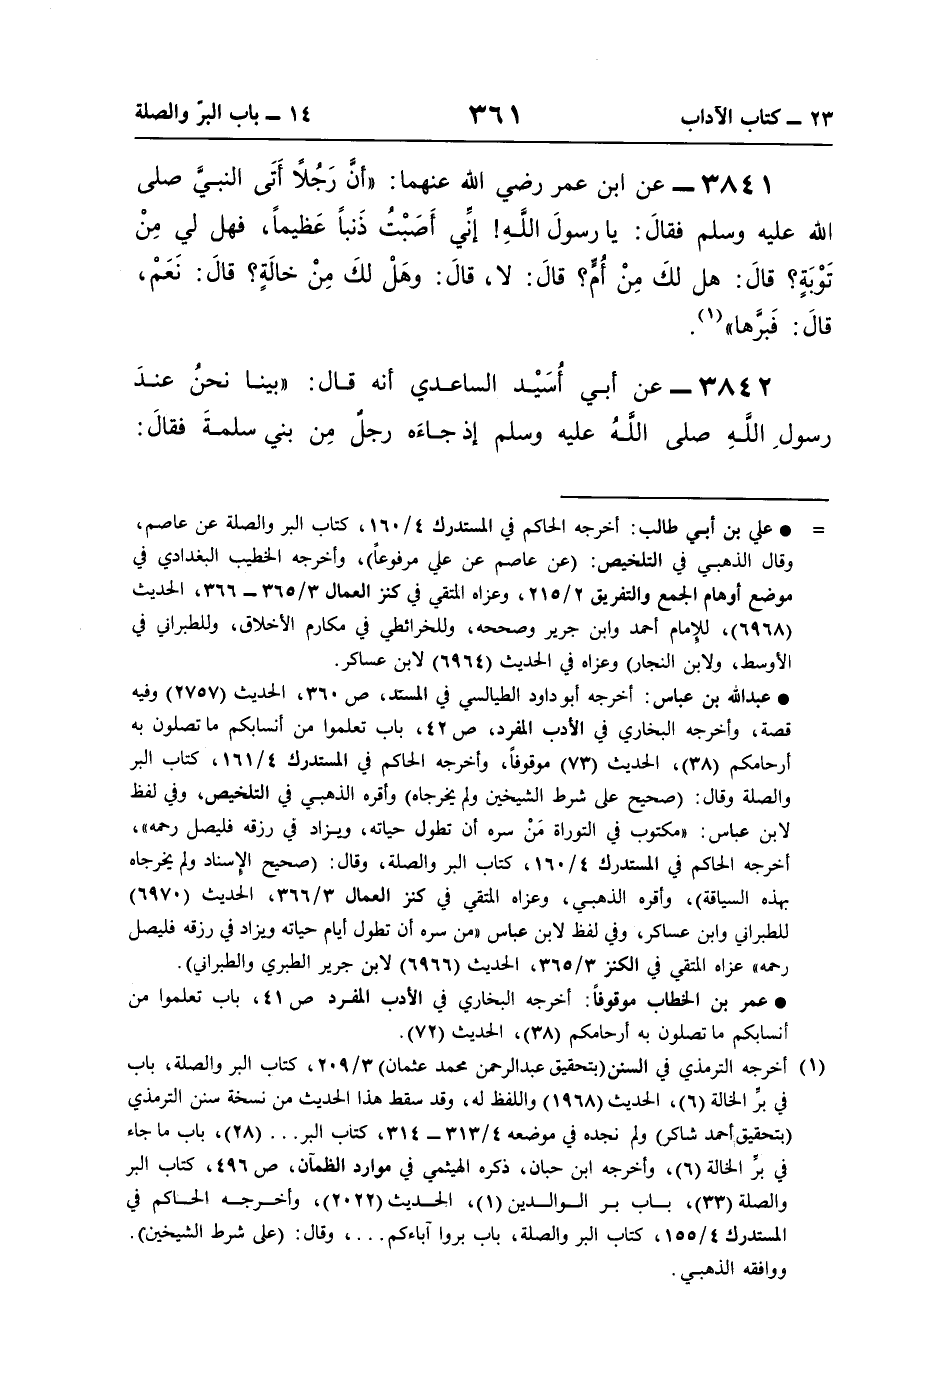 ٢٣ ـ كتاب الآداب ٣٦١ ١٤ ـ باب البرّ والصلة
٣٨٤١ ـ عن ابن عمر رضي الله عنهما: «أنَّ رَجُلًا أَتَى النبيَّ صلى
الله عليه وسلم فقالَ: يا رسولَ اللَّهِ! إنِّي أَصَبْتُ ذَنباً عَظيماً، فهل لي مِنْ
تَوْبَةٍ؟ قالَ: هل لكَ مِنْ أُمٍّ؟ قالَ: لا، قالَ: وهَلْ لكَ مِنْ خالَةٍ؟ قالَ: نَعَمْ،
قالَ: فَبَرَّها»(١).
٣٨٤٢ ـ عن أبي أُسَيْد الساعدي أنه قال: «بينا نحنُ عندَ
رسولِ اللَّهِ صلى اللَّهُ عليه وسلم إذ جاءَه رجلٌ مِن بني سلمةَ فقالَ:
= ● علي بن أبي طالب: أخرجه الحاكم في المستدرك ٤/١٦٠، كتاب البر والصلة عن عاصم،
وقال الذهبي في التلخيص: (عن عاصم عن علي مرفوعاً)، وأخرجه الخطيب البغدادي في
موضع أوهام الجمع والتفريق ٢/٢١٥، وعزاه المتقي في كنز العمال ٣/٣٦٥ ـ ٣٦٦، الحديث
(٦٩٦٨)، للإمام أحمد وابن جرير وصححه، وللخرائطي في مكارم الأخلاق، وللطبراني في
الأوسط، ولابن النجار) وعزاه في الحديث (٦٩٦٤) لابن عساكر.
● عبدالله بن عباس: أخرجه أبو داود الطيالسي في المسند، ص ٣٦٠، الحديث (٢٧٥٧) وفيه
قصة، وأخرجه البخاري في الأدب المفرد، ص ٤٢، باب تعلموا من أنسابكم ما تصلون به
أرحامكم (٣٨)، الحديث (٧٣) موقوفاً، وأخرجه الحاكم في المستدرك ٤/١٦١، كتاب البر
والصلة وقال: (صحيح على شرط الشيخين ولم يخرجاه) وأقره الذهبي في التلخيص، وفي لفظ
لابن عباس: «مكتوب في التوراة مَنْ سره أن تطول حياته، ويزاد في رزقه فليصل رحمه»،
أخرجه الحاكم في المستدرك ٤/١٦٠، كتاب البر والصلة، وقال: (صحيح الإسناد ولم يخرجاه
بهذه السياقة)، وأقره الذهبي، وعزاه المتقي في كنز العمال ٣/٣٦٦، الحديث (٦٩٧٠)
للطبراني وابن عساكر، وفي لفظ لابن عباس «من سره أن تطول أيام حياته ويزاد في رزقه فليصل
رحمه» عزاه المتقي في الكنز ٣/٣٦٥، الحديث (٦٩٦٦) لابن جرير الطبري والطبراني).
● عمر بن الخطاب موقوفاً: أخرجه البخاري في الأدب المفرد ص ٤١، باب تعلموا من
أنسابكم ما تصلون به أرحامكم (٣٨)، الحديث (٧٢).
(١) أخرجه الترمذي في السنن (بتحقيق عبدالرحمن محمد عثمان) ٣/٢٠٩، كتاب البر والصلة، باب
في برِّ الخالة (٦)، الحديث (١٩٦٨) واللفظ له، وقد سقط هذا الحديث من نسخة سنن الترمذي
(بتحقيق أحمد شاكر) ولم نجده في موضعه ٤/٣١٣ ـ ٣١٤، كتاب البر... (٢٨)، باب ما جاء
في برِّ الخالة (٦)، وأخرجه ابن حبان، ذكره الهيثمي في موارد الظمآن، ص ٤٩٦، كتاب البر
والصلة (٣٣)، باب بر الوالدين (١)، الحديث (٢٠٢٢)، وأخرجه الحاكم في
المستدرك ٤/١٥٥، كتاب البر والصلة، باب بروا آباءكم...، وقال: (على شرط الشيخين).
ووافقه الذهبي.